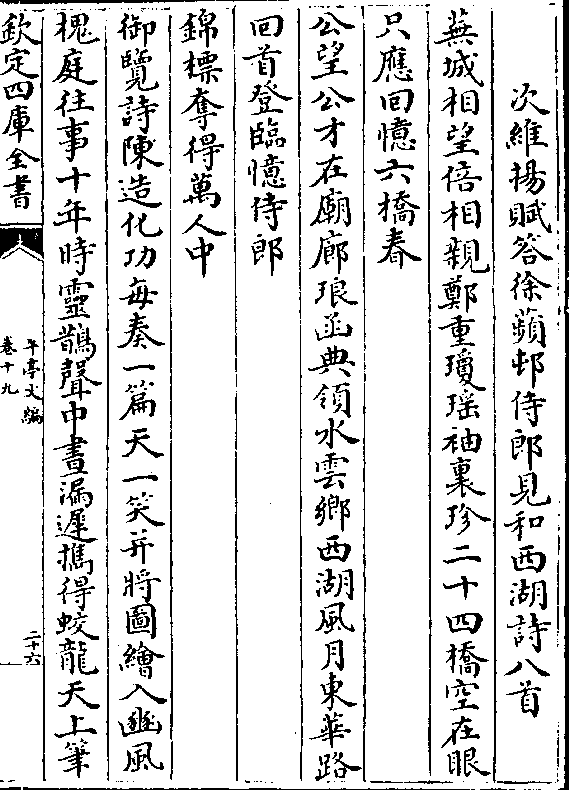 次維揚賦答徐蘋邨侍郎見和西湖詩八首
蕪城相望倍相親鄭重瓊瑶袖裏珍二十四橋空在眼
只應回憶六橋春
公望公才在廟廊琅函典領水雲鄉西湖風月東華路
回首登臨憶侍郎
錦標奪得萬人中
御覽詩陳造化功每奏一篇天一笑并將圖繪入豳風
槐庭往事十年時靈鵲聲中晝漏遲擕得蛟龍天上筆
欽定四庫全書
午亭文編
卷十九
二十六